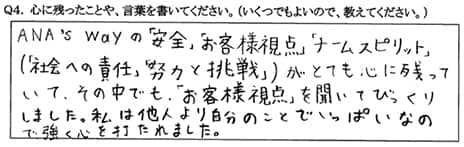 Q4. 心に残ったことや、言葉を書いてください。(いくつでもよいので、教えてください。)
ANA's wayの「安全」「お客様視点」「チームスピリット」
(「社会への責任」「努力と挑戦」)がとても心に残って
いて、その中でも、「お客様視点」を聞いてびっくり
しました。私は他人より自分のことでいっぱいなの
で強く心を打たれました。